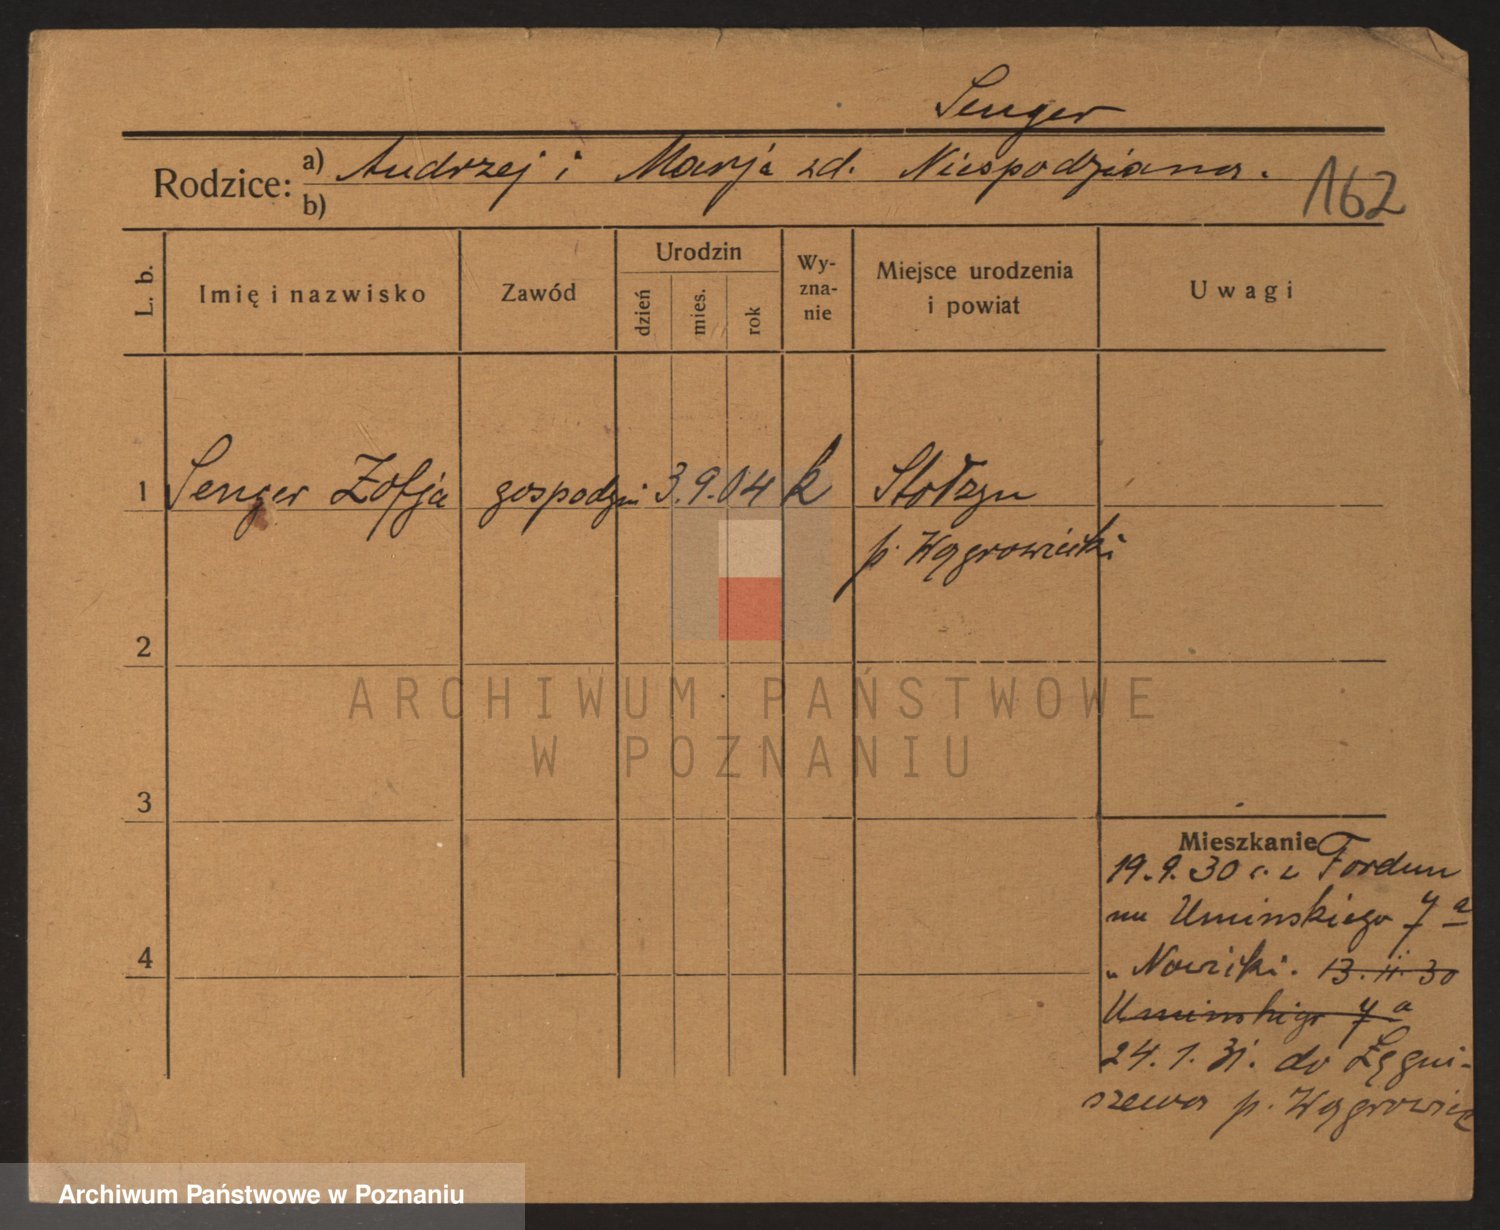 Senger
Rodzice: a) Andrzej i Marja zd. Niespodziana.
b)
162
L. b.
Imię i nazwisko
Zawód
Urodzin
dzień
mies.
rok
Wy-
zna-
nie
Miejsce urodzenia
i powiat
Uwagi
1 Senger Zofja gospodyni 3.9.04 k Stołzyn
p. Wągrowiecki
2
3
4
Mieszkanie
19.9.30 Fordun
Uminskiego 7a
" Nowicki. 13.11.30
Uminskiego 7a
24.1.31. do
szewa p. Wągrowiec
ARCHIWUM PAŃSTWOWE
W POZNANIU
Archiwum Państwowe w Poznaniu